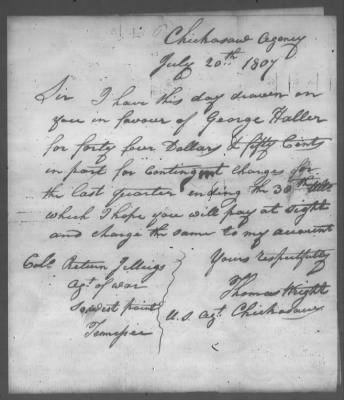 Chickasaw Agency
July 20th 1807
Sir I have this day drawn on
you in favour of George Haller
for forty four Dollars & fifty Cents
in part for Contingent Charges for
the last quarter ending the 30th
which I hope you will pay at sight
and charge the same to my account
Yours respectfully
Thomas Wright
U.S. Agt. Chickasaws
Colo. Return J Meigs
Agt. of war
So west point
Tennessee